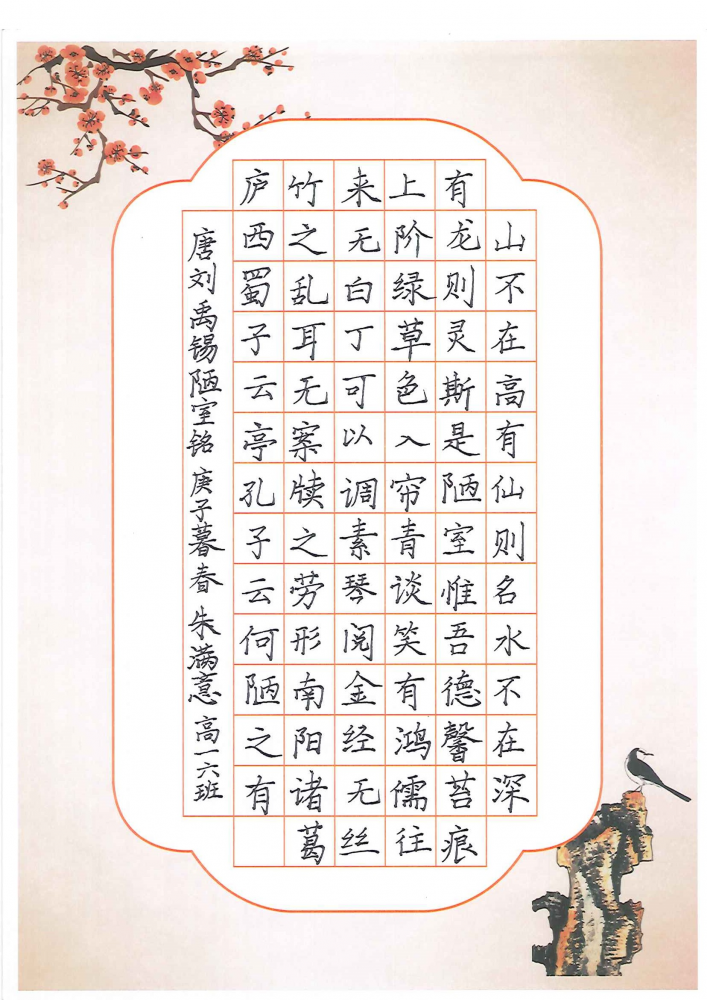 山不在高有仙则名水不在深
有龙则灵斯是陋室惟吾德馨苔痕
上阶绿草色入帘青谈笑有鸿儒往
来无白丁可以调素琴阅金经无丝
竹之乱耳无案牍之劳形南阳诸葛
庐西蜀子云亭孔子云何陋之有
唐刘禹锡陋室铭 庚子暮春 朱满意 高一六班